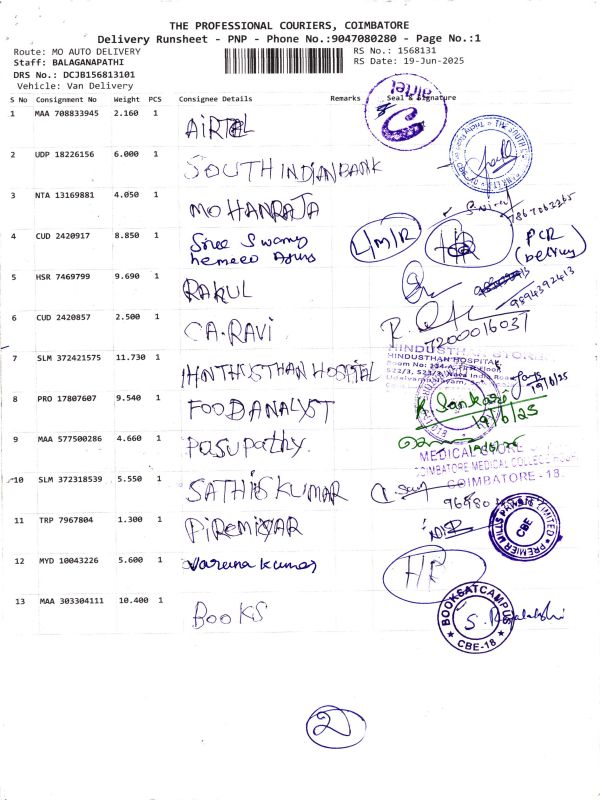 THE PROFESSIONAL COURIERS, COIMBATORE
Delivery Runsheet - PNP - Phone No.:9047080280 - Page No.:1
Route: MO AUTO DELIVERY RS No.: 1568131
Staff: BALAGANAPATHI RS Date: 19-Jun-2025
DRS No.: DCJB156813101
Vehicle: Van Delivery
S No Consignment No Weight PCS Consignee Details Remarks Seal & Signature
1 MAA 708833945 2.160 1 AIRTEL airtel
2 UDP 18226156 6.000 1 SOUTH INDIAN BANK
3 NTA 13169881 4.050 1 MOHANRAJA
7867062365
4 CUD 2420917 8.850 1 Sree Swamy L/M/R PCR
5 HSR 7469799 9.690 1 RAKUL
9894392413
6 CUD 2420857 2.500 1 CA.RAVI
7200016037
HINDUSTHAN HOSPITAL
7 SLM 372421575 11.730 1 HINTHUSTHAN HOSPITAL
19/6/25
8 PRO 17807607 9.540 1 FOODANALYST
19/6/25
9 MAA 577500286 4.660 1 Pasupathy.
MEDICAL
COIMBATORE MEDICAL COLLEGE
COIMBATORE - 18.
10 SLM 372318539 5.550 1 SATHISKUMAR
11 TRP 7967804 1.300 1 PiREMiYAR PREMIER MILLS PRIVATE LIMITED CBE
12 MYD 10043226 5.600 1 Varuna kumar HR
13 MAA 303304111 10.400 1 BOOKS BOOKSATCAMPUS CBE-18
2